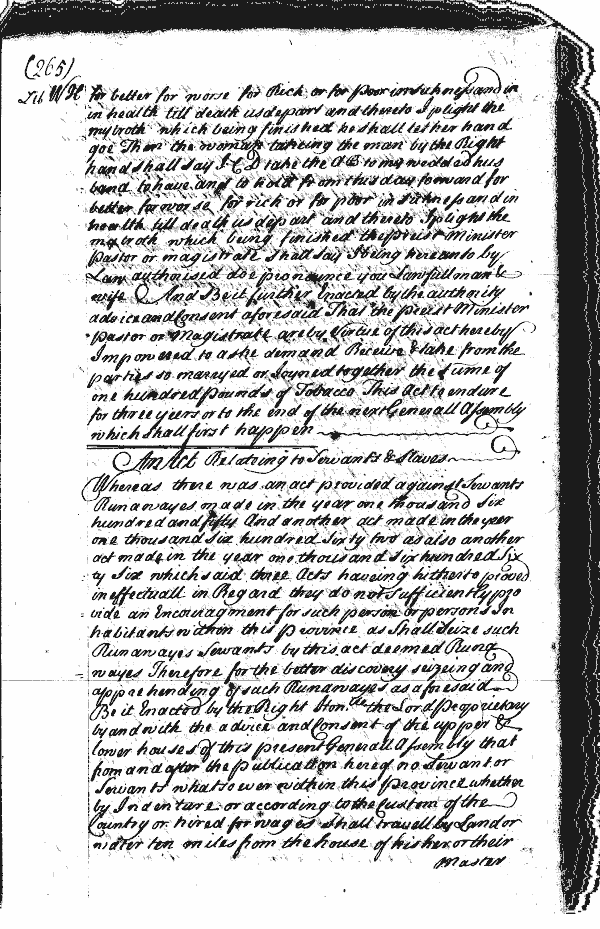 (265)
Lib WH for better for worse for Rich or for poor in sickness and in
in health till death us depart and thereto I plight the
my troth which being finished he shall let her hand
goe Then the woman takeing the man by the Right
hand shall say I C D take the A B to my wedded hus
band to have and to hold from this day forward for
better for worse for rich or for poor in sickness and in
health till death us depart and thereto I plight the
my troth which being finished the preist Minister
pastor or magistrate shall say I being hereunto by
Law authorised doe pronounce you Lawfull man &
wife And Be it further Enacted by the authority
advice and Consent aforesaid That the preist Minister
pastor or Magistrate are by Virtue of this act hereby
Impowered to aske demand Receive & take from the
parties so marryed or Joyned together the sume of
one hundred pounds of Tobacco This Act to endure
for three yeers or to the end of the next Generall Assembly
which shall first happen
An Act Relating to Servants & Slaves
Whereas there was an act provided against Servants
Runawayes made in the year one thousand Six
hundred and fifty And another act made in the year
one thousand six hundred Sixty two as also another
act made in the year one thousand six hundred Six
ty Six which said three Acts haveing hitherto proved
ineffectuall in Regard they do not sufficiently pro
vide an Encouragment for such person or persons In
habitants within this province as Shall Seize such
Runawayes Servants by this act deemed Runa
wayes Therefore for the better discovery seizeing and
apprehending of such Runawayes as aforesaid
Be it Enacted by the Right Hon.ble the Lord Proprietary
by and with the advice and Consent of the upper &
lower houses of this present Generall Assembly that
from and after the publication hereof no Servant or
Servants whatsoever within this province whether
by Indenture or according to the Custom of the
Country or hired for wages shall travell by Land or
water ten miles from the house of his her or their
Master